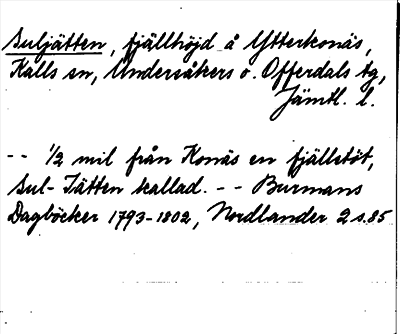 Suljätten, fjällhöjd å Ytterkonäs,
Kalls sn, Undersåkers o. Offerdals tg,
Jämtl. l.
-- 1/2 mil från Konäs en fjällstöt,
Sul-Jätten kallad. -- Burmans
Dagböcker 1793-1802, Nordlander 2 s. 85